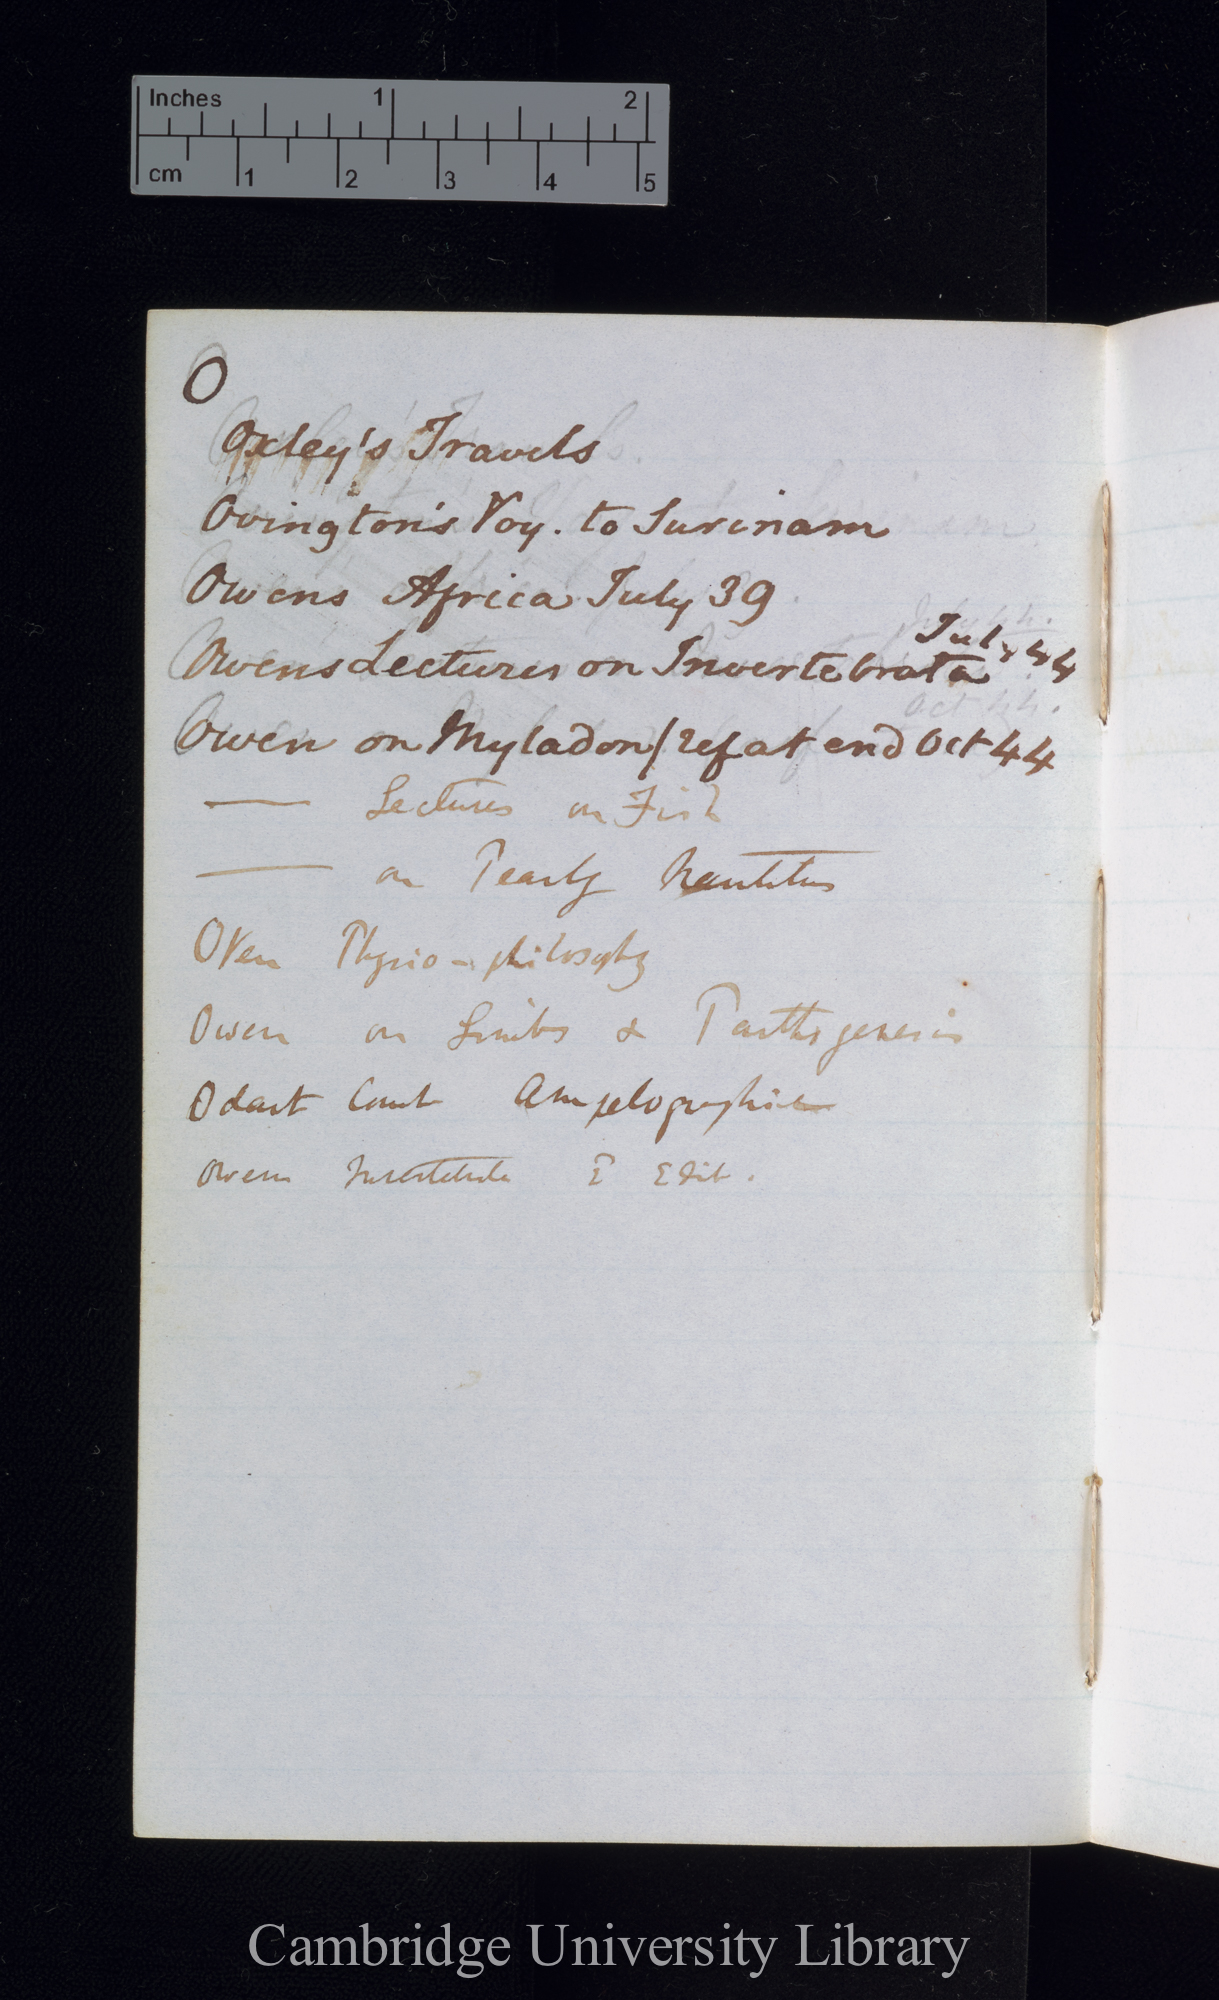 Inches 1 2
cm 1 2 3 4 5
O
Oxley's Travels
Ovington's Voy. to Surinam
Owens Africa July 39
July 44
Owens Lectures on Invertebrata
Owen on Myladon/ref at end Oct 44
— Lectures on Fish
— on Pearly Nautilus
Oken Physio-philosophy
Owen on Limbs & Parthogenesis
Odart Count Ampelographie
Owen Invertebrata Edit.
Cambridge University Library